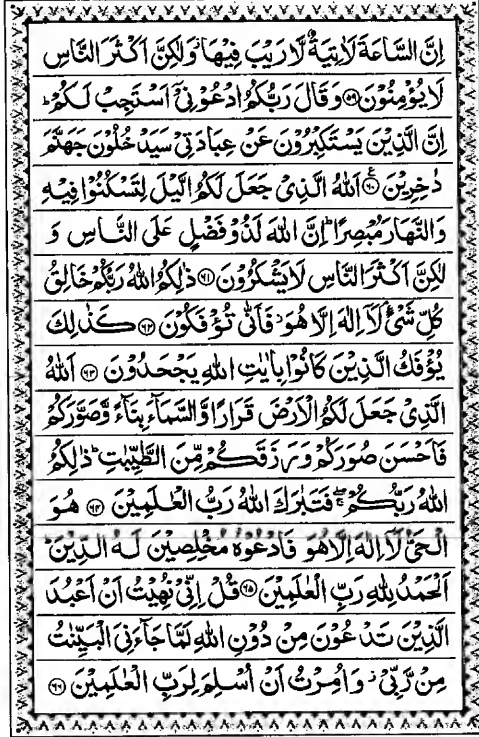 اِنَّ السَّاعَةَ لَاٰتِيَةٌ لَّا رَيْبَ فِيْهَا وَلٰكِنَّ اَكْثَرَ النَّاسِ
لَا يُؤْمِنُوْنَ ۝۵۹ وَقَالَ رَبُّكُمُ ادْعُوْنِيْۤ اَسْتَجِبْ لَكُمْ ؕ
اِنَّ الَّذِيْنَ يَسْتَكْبِرُوْنَ عَنْ عِبَادَتِيْ سَيَدْخُلُوْنَ جَهَنَّمَ
دٰخِرِيْنَ ۝۶۰ اَللّٰهُ الَّذِيْ جَعَلَ لَكُمُ الَّيْلَ لِتَسْكُنُوْا فِيْهِ
وَالنَّهَارَ مُبْصِرًا ؕ اِنَّ اللّٰهَ لَذُوْ فَضْلٍ عَلَى النَّاسِ وَ
لٰكِنَّ اَكْثَرَ النَّاسِ لَا يَشْكُرُوْنَ ۝۶۱ ذٰلِكُمُ اللّٰهُ رَبُّكُمْ خَالِقُ
كُلِّ شَيْءٍ ۘ لَاۤ اِلٰهَ اِلَّا هُوَ ۚ فَاَنّٰى تُؤْفَكُوْنَ ۝۶۲ كَذٰلِكَ
يُؤْفَكُ الَّذِيْنَ كَانُوْا بِاٰيٰتِ اللّٰهِ يَجْحَدُوْنَ ۝۶۳ اَللّٰهُ
الَّذِيْ جَعَلَ لَكُمُ الْاَرْضَ قَرَارًا وَّالسَّمَآءَ بِنَآءً وَّصَوَّرَكُمْ
فَاَحْسَنَ صُوَرَكُمْ وَرَزَقَكُمْ مِّنَ الطَّيِّبٰتِ ؕ ذٰلِكُمُ
اللّٰهُ رَبُّكُمْ ۖۚ فَتَبٰرَكَ اللّٰهُ رَبُّ الْعٰلَمِيْنَ ۝۶۴ هُوَ
الْحَيُّ لَاۤ اِلٰهَ اِلَّا هُوَ فَادْعُوْهُ مُخْلِصِيْنَ لَهُ الدِّيْنَ ؕ
اَلْحَمْدُ لِلّٰهِ رَبِّ الْعٰلَمِيْنَ ۝۶۵ قُلْ اِنِّيْ نُهِيْتُ اَنْ اَعْبُدَ
الَّذِيْنَ تَدْعُوْنَ مِنْ دُوْنِ اللّٰهِ لَمَّا جَآءَنِيَ الْبَيِّنٰتُ
مِنْ رَّبِّيْ ۫ وَاُمِرْتُ اَنْ اُسْلِمَ لِرَبِّ الْعٰلَمِيْنَ ۝۶۶